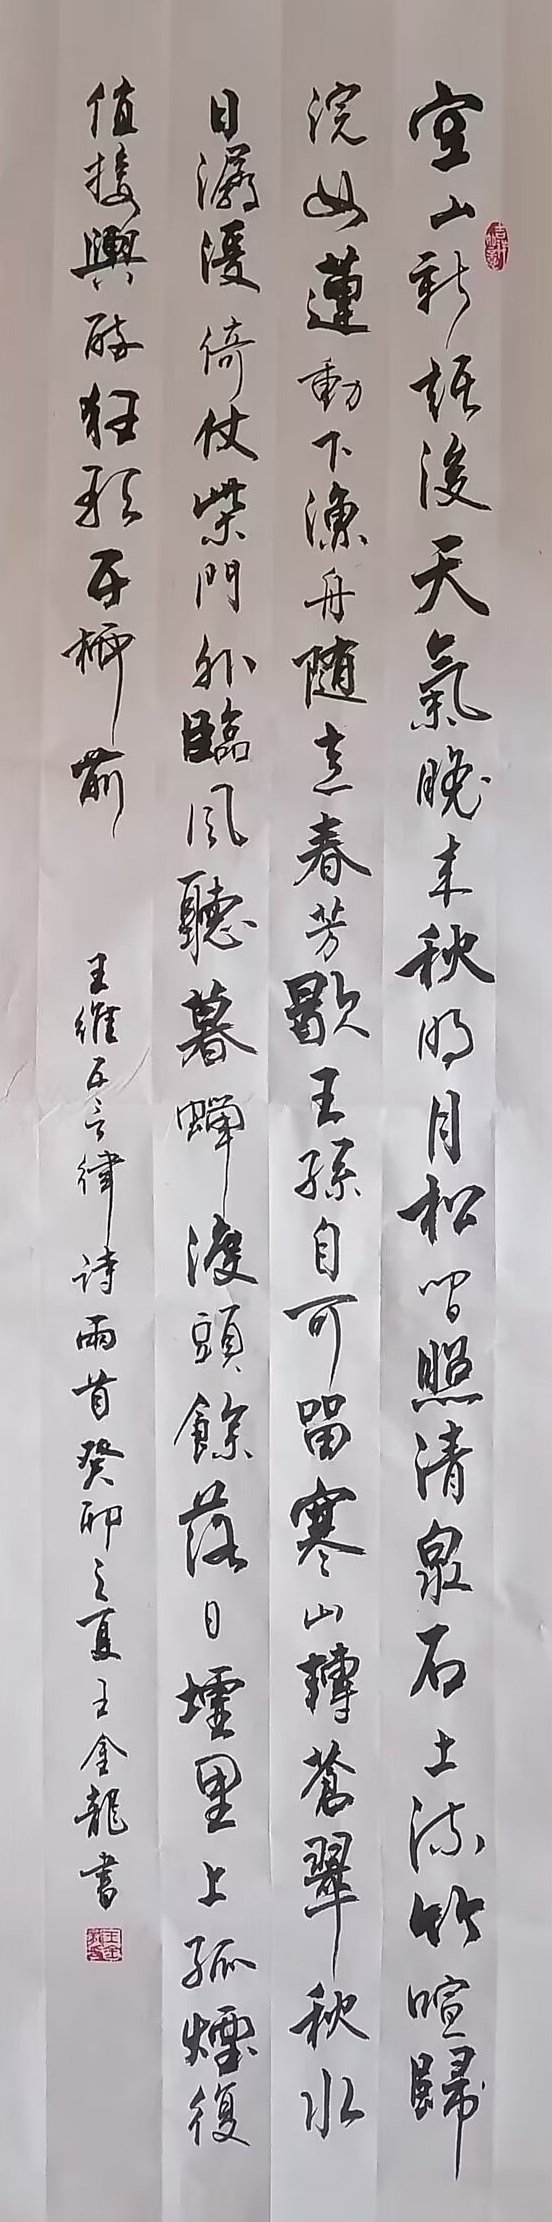 空山新後天氣晚来秋明月松间照清泉石土流竹喧歸
浣女蓮動下漁舟随意春芳歇王孫自可留寒山轉蒼翠秋水
日潺湲倚仗柴門外臨風聽暮蟬渡頭餘落日墟里上孤煙復
值接輿醉狂歌五柳前
王維五言律诗兩首癸卯之夏王金龍書